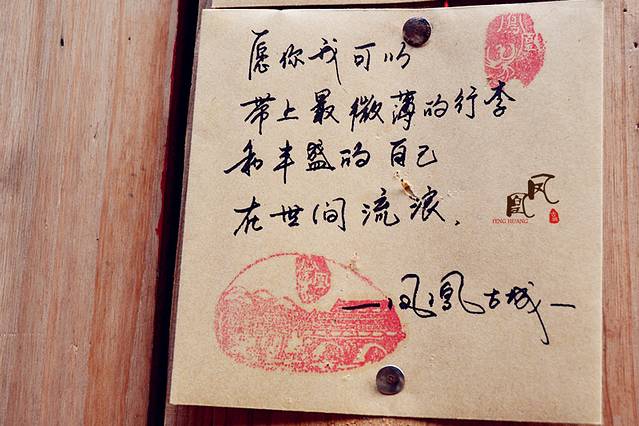 愿你我可以
凤凰
带上最微薄的行李
和丰盛的自己
在世间流浪.
凤凰
FENG HUANG
古城
—凤凰古城—